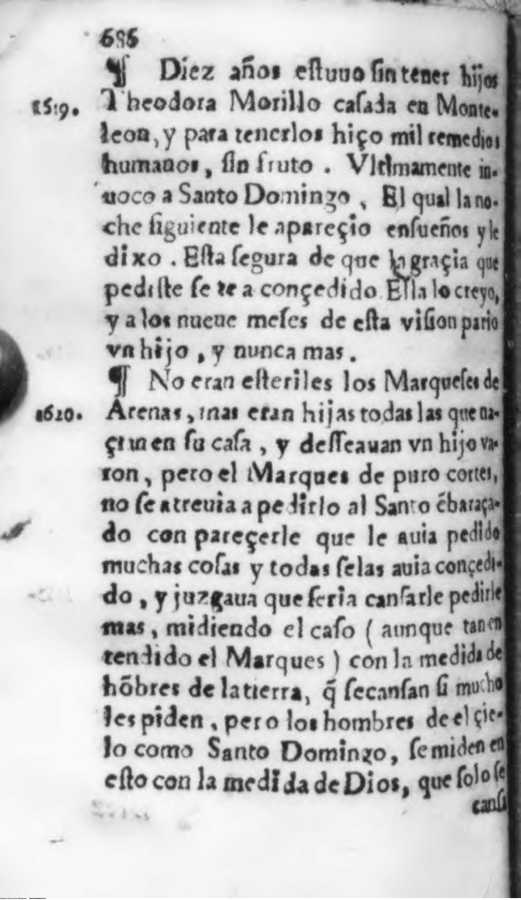 686
¶ Diez años eſtuuo ſin tener hijos
1519. Theodora Morillo caſada en Monte-
leon, y para tenerlos hiço mil remedios
humanos, ſin fruto. Vltimamente in-
uoco a Santo Domingo, El qual la no-
che ſiguiente le apareçio enſueños y le
dixo. Eſta ſegura de que la graçia que
pediſte ſe te a conçedido Ella lo creyo,
y a los nueue meſes de eſta viſion pario
vn hijo, y nunca mas.
¶ No eran eſteriles los Marqueſes de
1620. Arenas, mas eran hijas todas las que na-
çian en ſu caſa, y deſſeauan vn hijo va-
ron, pero el Marques de puro cortes,
no ſe atreuia a pedirlo al Santo ẽbaraça-
do con pareçerle que le auia pedido
muchas coſas y todas ſelas auia conçedi-
do, y juzgaua que ſeria canſarle pedirle
mas, midiendo el caſo (aunque tan en
tendido el Marques) con la medida de
hõbres de la tierra, q̃ ſecanſan ſi mucho
les piden, pero los hombres de el çie-
lo como Santo Domingo, ſe miden en
eſto con la medida de Dios, que ſolo ſe
canſa